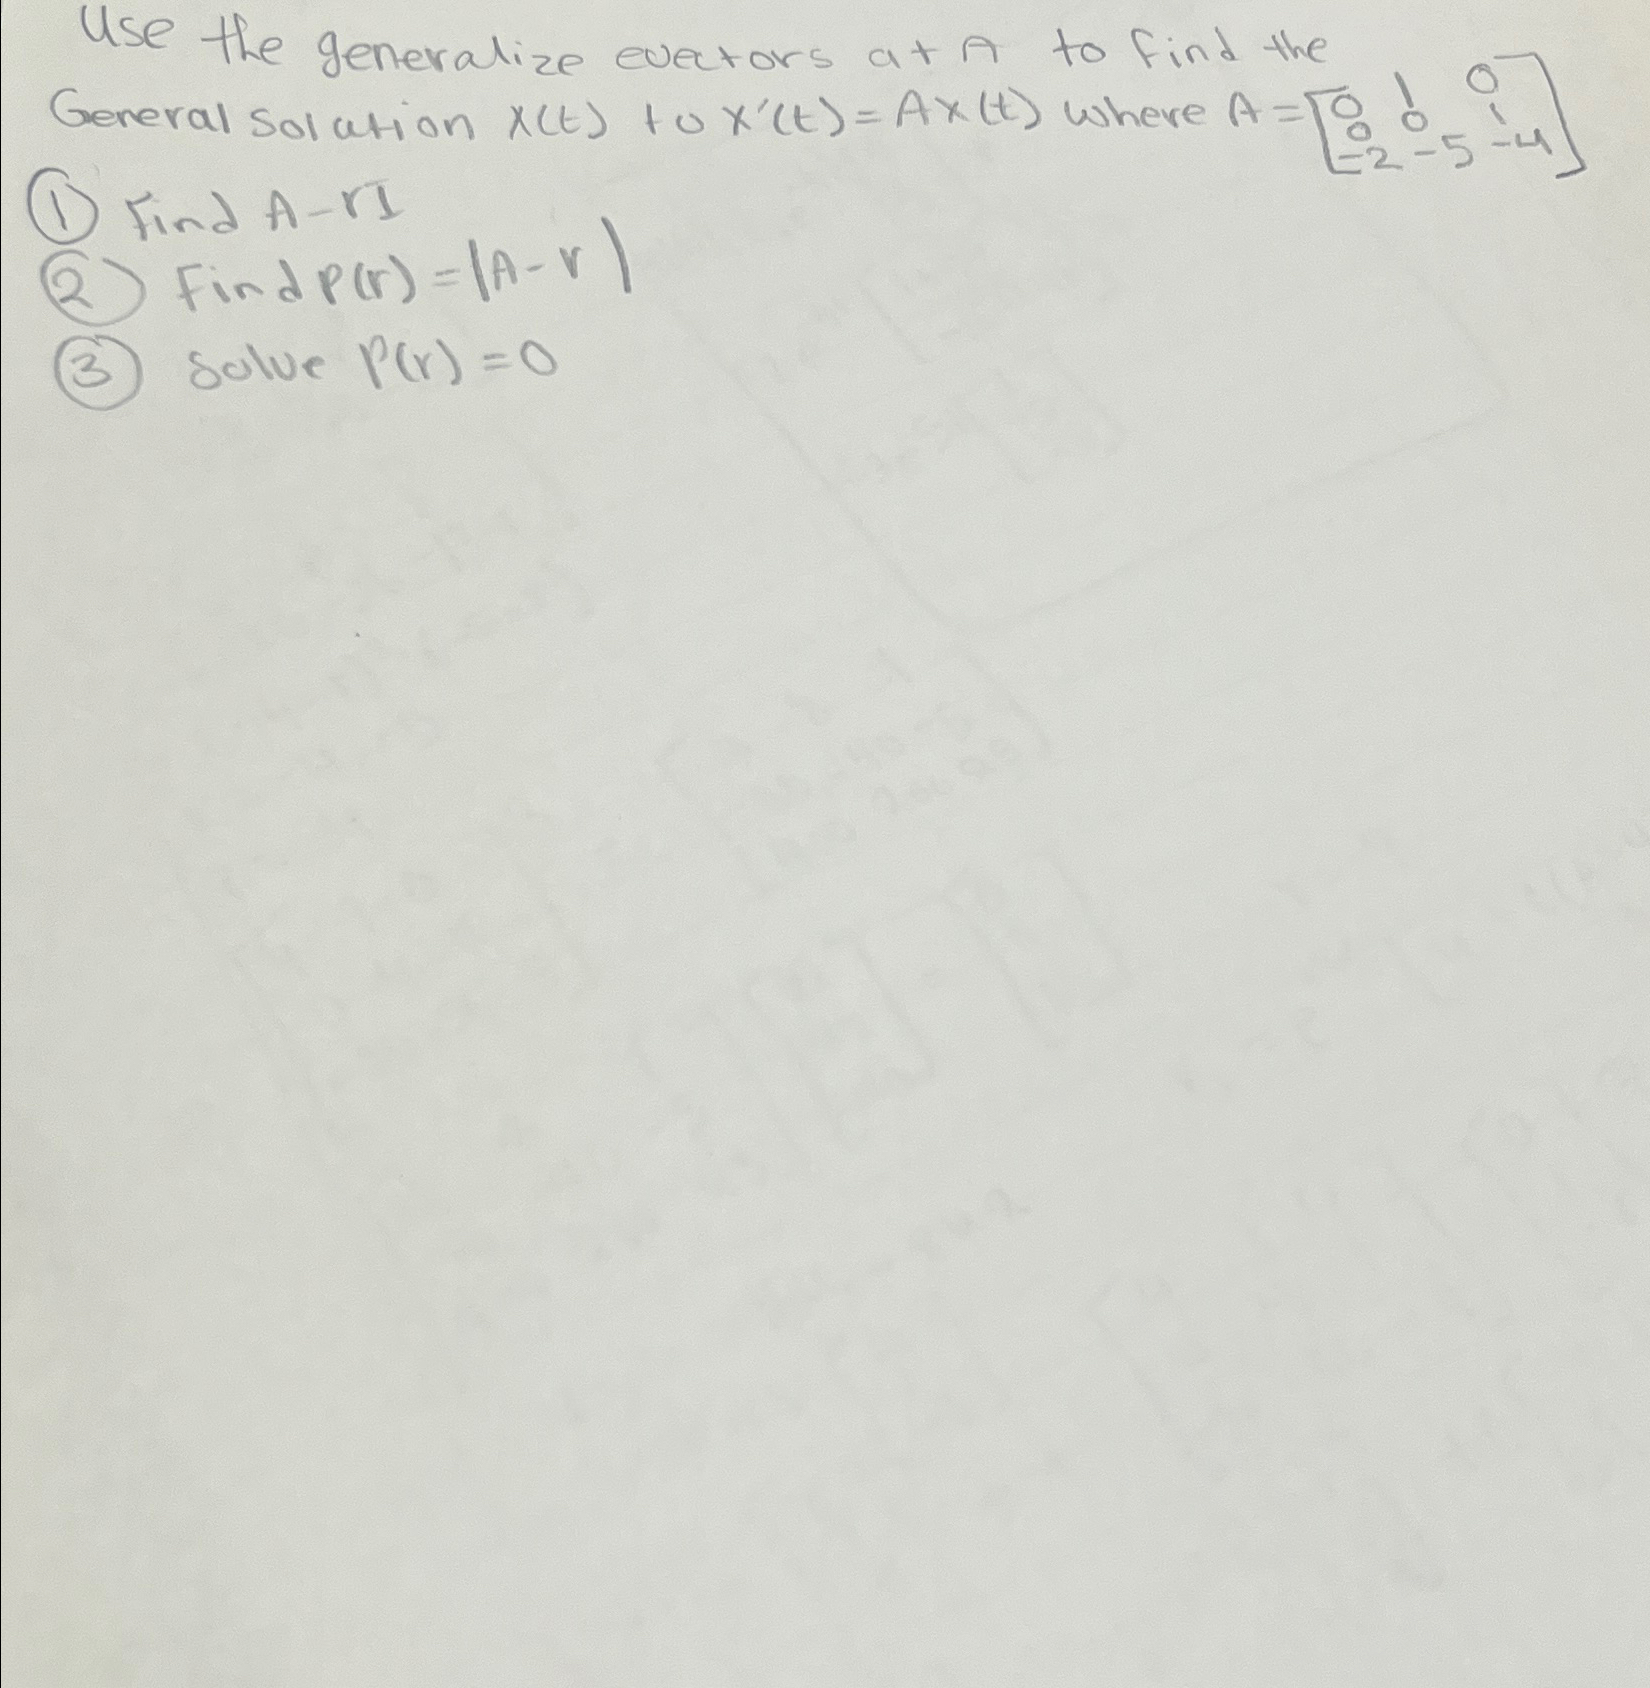 Use the generalize evectors at A to find the
General solution X(t) to X'(t) = AX(t) where A = [0 1 0
0 0 1
-2 -5 -4]
① Find A-rI
② Find P(r) = |A-r|
③ Solve P(r) = 0